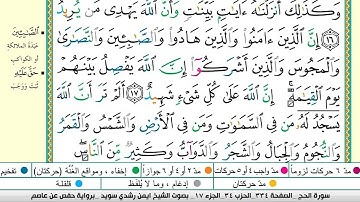 وَكَذَٰلِكَ أَنزَلْنَٰهُ ءَايَٰتٍۭ بَيِّنَٰتٍ وَأَنَّ ٱللَّهَ يَهْدِى مَن يُرِيدُ
١٦ إِنَّ ٱلَّذِينَ ءَامَنُوا۟ وَٱلَّذِينَ هَادُوا۟ وَٱلصَّٰبِـِٔينَ وَٱلنَّصَٰرَىٰ
وَٱلْمَجُوسَ وَٱلَّذِينَ أَشْرَكُوٓا۟ إِنَّ ٱللَّهَ يَفْصِلُ بَيْنَهُمْ
يَوْمَ ٱلْقِيَٰمَةِ إِنَّ ٱللَّهَ عَلَىٰ كُلِّ شَىْءٍ شَهِيدٌ ١٧ أَلَمْ تَرَ أَنَّ ٱللَّهَ
يَسْجُدُ لَهُۥ مَن فِى ٱلسَّمَٰوَٰتِ وَمَن فِى ٱلْأَرْضِ وَٱلشَّمْسُ وَٱلْقَمَرُ
وَٱلنُّجُومُ وَٱلْجِبَالُ وَٱلشَّجَرُ وَٱلدَّوَآبُّ وَكَثِيرٌ مِّنَ ٱلنَّاسِ
الصَّٰبِـِٔينَ
عبدة الملائكة
أو الكواكب
حَقَّ عَلَيْهِ
ثبت ووجب
مدّ ٦ حركات لزوماً مدّ ٢ أو ٤ أو ٦ جوازاً مدّ واجب ٤ أو ٥ حركات إخفاء، ومواقع الغُنَّة (حركتان) تفخيم
مدّ حركتان إدغام، وما لا يُلفَظ قلقلة
سورة الحج _ الصفحة ٣٣٤ _ الجزء ١٧ _ بصوت الشيخ أيمن رشدي سويد _ برواية حفص عن عاصم